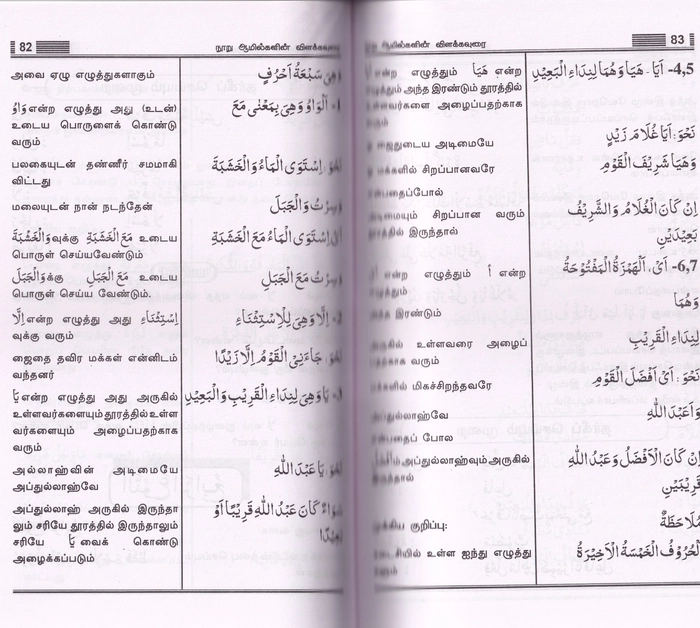 82
நூறு ஆமில்களின் விளக்கவுரை
அவை ஏழு எழுத்துகளாகும்
وَهِيَ سَبْعَةُ اَحْرُفٍ
وَاوُ என்ற எழுத்து அது (உடன்)
உடைய பொருளைக் கொண்டு
வரும்
اَلْوَاوُ وَهِيَ بِمَعْنٰى مَعَ
பலகையுடன் தண்ணீர் சமமாகி
விட்டது
اِسْتَوَى الْمَاءُ وَالْخَشَبَةَ
மலையுடன் நான் நடந்தேன்
وَسِرْتُ وَالْجَبَلَ
وَالْخَشَبَةَ வுக்கு مَعَ الْخَشَبَةِ உடைய
பொருள் செய்யவேண்டும்
اِسْتَوَى الْمَاءُ مَعَ الْخَشَبَةِ
وَالْجَبَلَ க்கு مَعَ الْجَبَلِ உடைய
பொருள் செய்ய வேண்டும்.
وَسِرْتُ مَعَ الْجَبَلِ
اِلَّا என்ற எழுத்து அது اِسْتِثْنَاءِ
வுக்கு வரும்
اِلَّا وَهِيَ لِلْاِسْتِثْنَاءِ
ஜைதை தவிர மக்கள் என்னிடம்
வந்தனர்
جَاءَنِى الْقَوْمُ اِلَّا زَيْدًا
يَا என்ற எழுத்து அது அருகில்
உள்ளவர்களையும் தூரத்தில் உள்ள
வர்களையும் அழைப்பதற்காக
வரும்
يَا وَهِيَ لِنِدَاءِ الْقَرِيْبِ وَالْبَعِيْدِ
அல்லாஹ்வின் அடிமையே
அப்துல்லாஹ்வே
يَا عَبْدَ اللهِ
அப்துல்லாஹ் அருகில் இருந்தா
லும் சரியே தூரத்தில் இருந்தாலும்
சரியே يَا வைக் கொண்டு
அழைக்கப்படும்
كَانَ عَبْدُ اللهِ قَرِيْبًا اَوْ
83
நூறு ஆமில்களின் விளக்கவுரை
என்ற எழுத்தும் هَيَا என்ற
அந்த இரண்டும் தூரத்தில்
அழைப்பதற்காக
4,5- اَيَا۔ هَيَا وَهُمَا لِنِدَاءِ الْبَعِيْدِ
அடிமையே
نَحْوُ: اَيَا غُلَامَ زَيْدٍ
மக்களில் சிறப்பானவரே
وَهَيَا شَرِيْفَ الْقَوْمِ
சிறப்பான வரும்
இருந்தால்
اِنْ كَانَ الْغُلَامُ وَالشَّرِيْفُ
بَعِيْدَيْنِ
என்ற எழுத்தும் أَ என்ற
இரண்டும்
6,7- اَىْ. اَلْهَمْزَةُ الْمَفْتُوْحَةُ
وَهُمَا
உள்ளவரை அழைப்
வரும்
لِنِدَاءِ الْقَرِيْبِ
மிகச்சிறந்தவரே
نَحْوُ: اَىْ اَفْضَلَ الْقَوْمِ
وَاَعَبْدَ اللهِ
போல
அப்துல்லாஹ்வும் அருகில்
اِنْ كَانَ الْاَفْضَلُ وَعَبْدُ اللهِ
قَرِيْبَيْنِ
குறிப்பு:
مُلَاحَظَةٌ
உள்ள ஐந்து எழுத்து
اَلْحُرُوْفُ الْخَمْسَةُ الْاَخِيْرَةُ